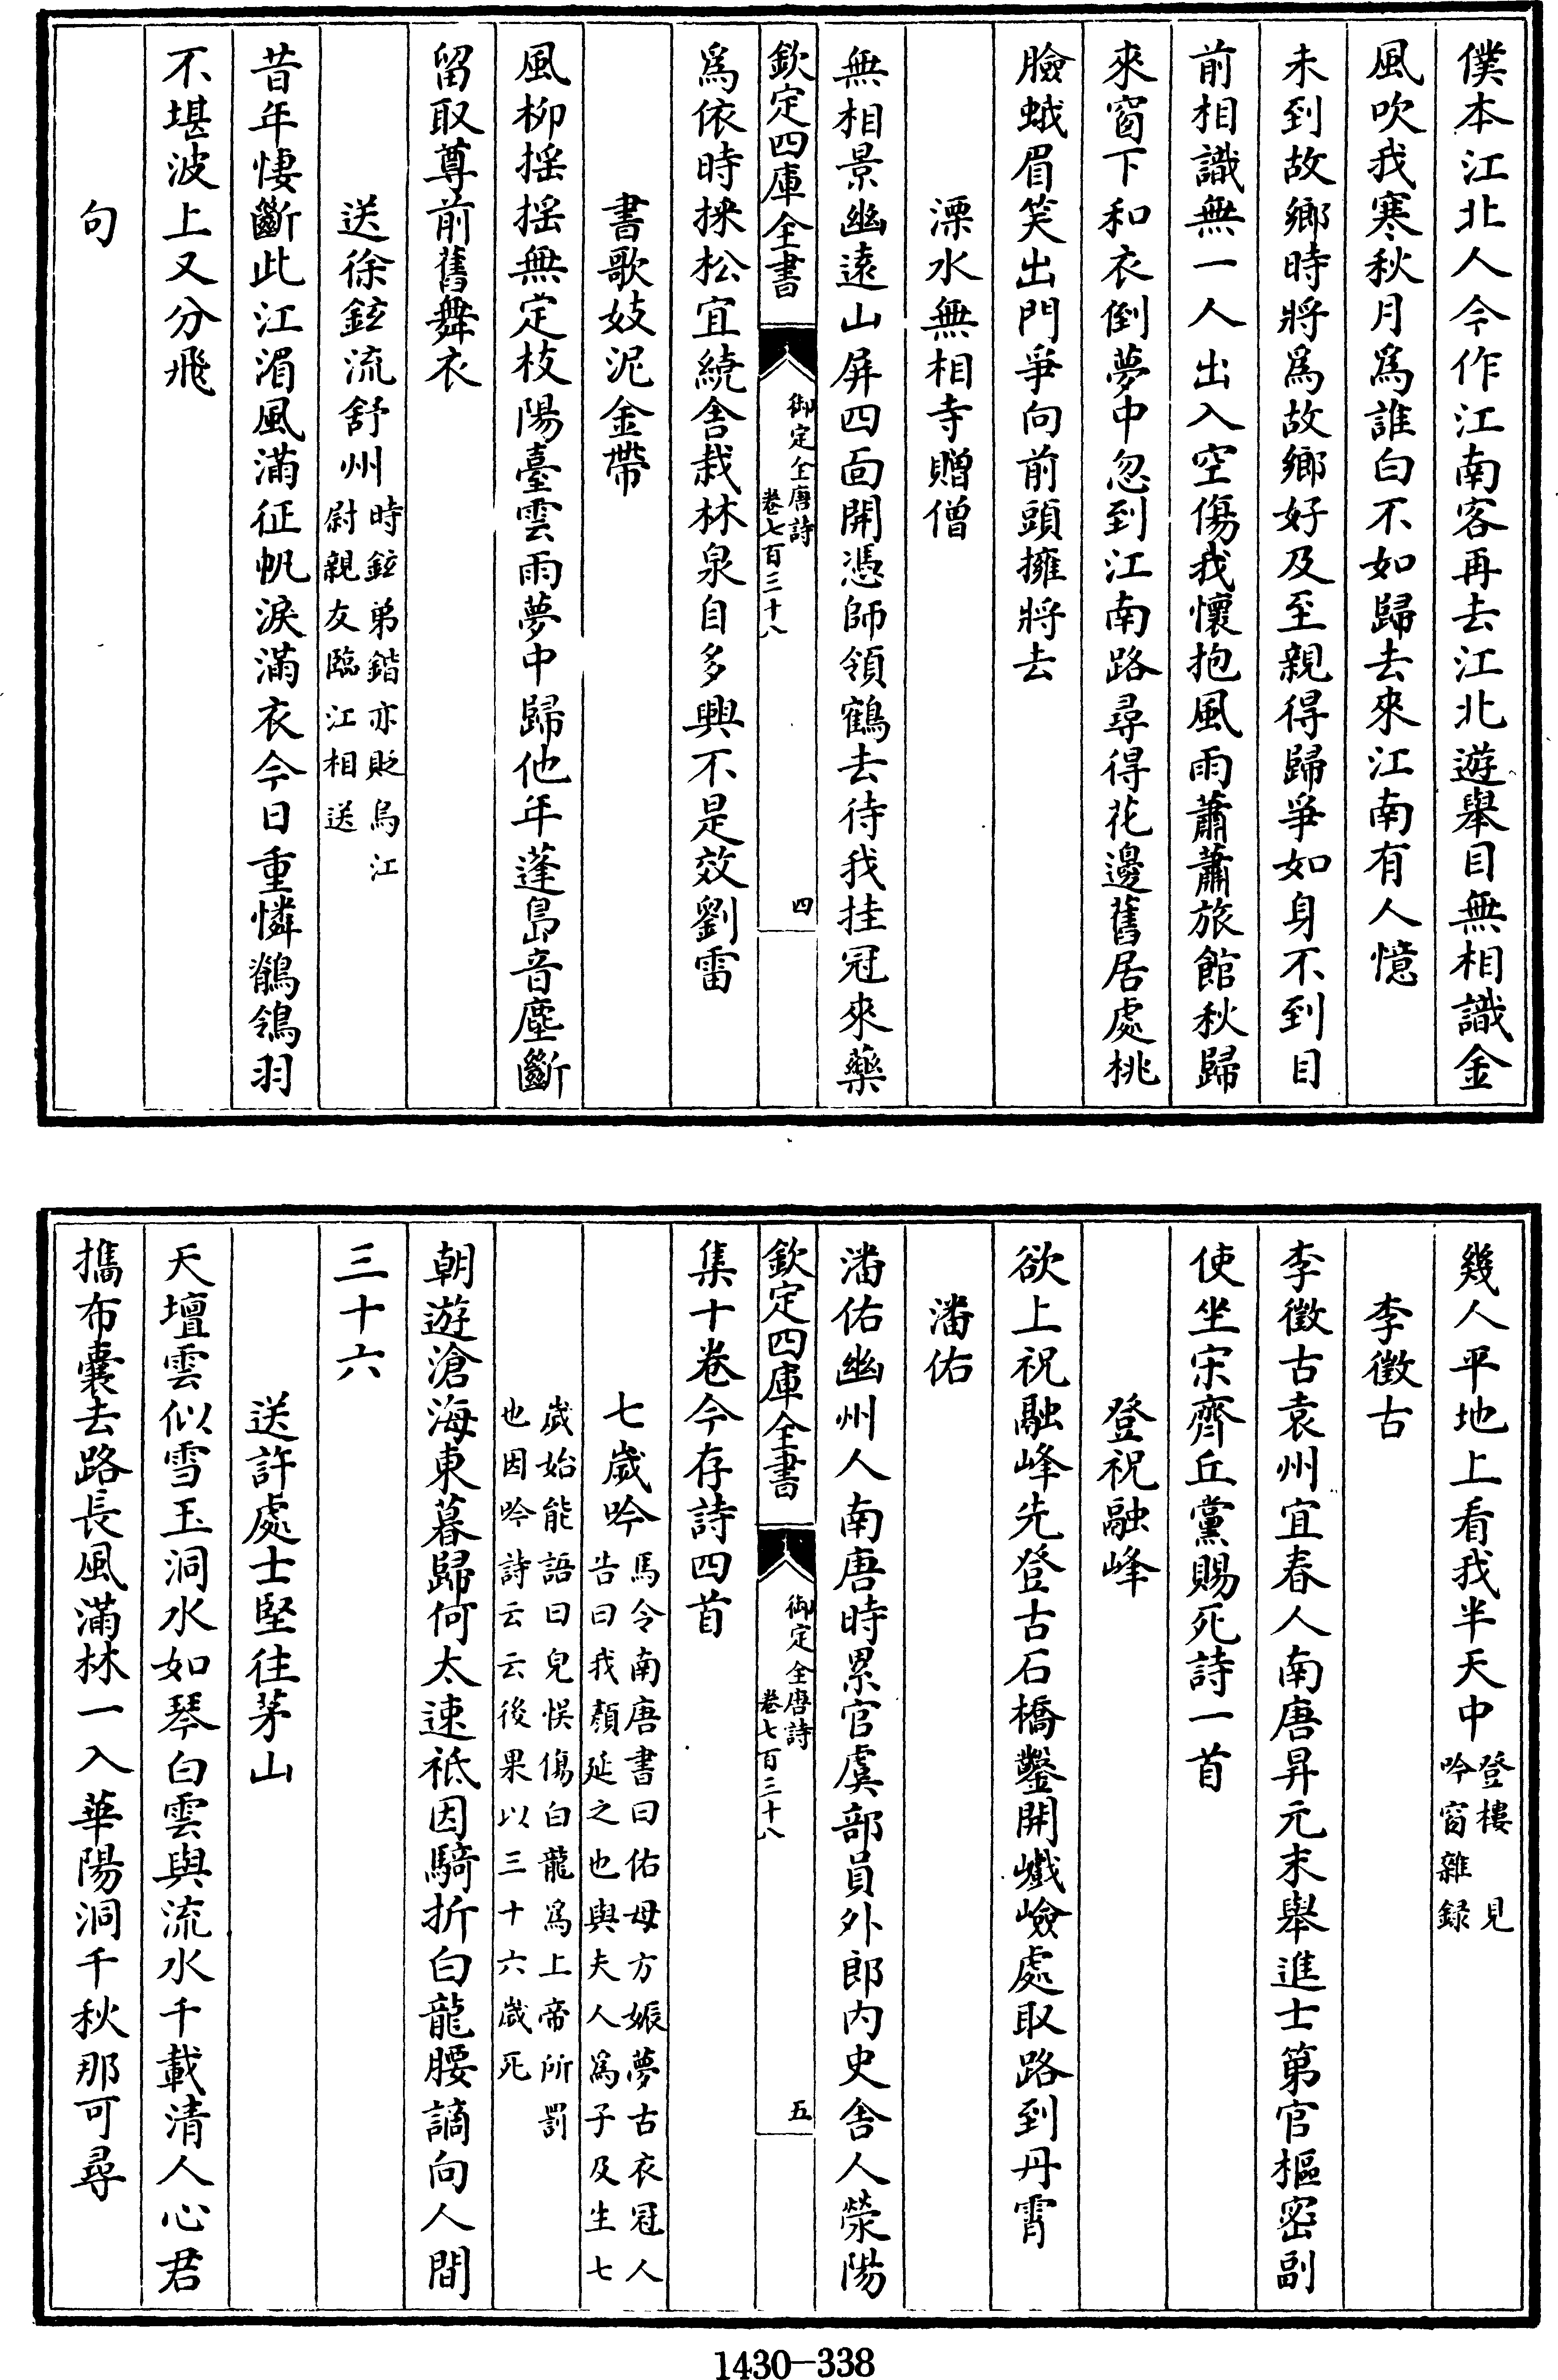 僕本江北人今作江南客再去江北遊舉目無相識金
風吹我寒秋月爲誰白不如歸去來江南有人憶
未到故鄉時將爲故鄉好及至親得歸爭如身不到目
前相識無一人出入空傷我懷抱風雨蕭蕭旅館秋歸
來窗下和衣倒夢中忽到江南路尋得花邊舊居處桃
臉蛾眉笑出門爭向前頭擁將去
溧水無相寺贈僧
無相景幽遠山屏四面開憑師領鶴去待我挂冠來藥
欽定四庫全書
御定全唐詩
卷七百三十八
四
爲依時採松宜繞舍栽林泉自多興不是效劉雷
書歌妓泥金帶
風柳搖搖無定枝陽臺雲雨夢中歸他年蓬島音塵斷
留取尊前舊舞衣
送徐鉉流舒州
時鉉弟鍇亦貶烏江
尉親友臨江相送
昔年悽斷此江湄風滿征帆淚滿衣今日重憐鶺鴒羽
不堪波上又分飛
句
幾人平地上看我半天中
登樓 見
吟窗雜録
李徵古
李徵古袁州宜春人南唐昇元末舉進士第官樞密副
使坐宋齊丘黨賜死詩一首
登祝融峰
欲上祝融峰先登古石橋鑿開巇嶮處取路到丹霄
潘佑
潘佑幽州人南唐時累官虞部員外郎内史舍人滎陽
欽定四庫全書
御定全唐詩
卷七百三十八
五
集十卷今存詩四首
七歲吟
馬令南唐書曰佑母方娠夢古衣冠人
告曰我顏延之也與夫人爲子及生七
歲始能語曰兒悞傷白龍爲上帝所罰
也因吟詩云云後果以三十六歲死
朝遊滄海東暮歸何太速祗因騎折白龍腰謫向人間
三十六
送許處士堅往茅山
天壇雲似雪玉洞水如琴白雲與流水千載清人心君
攜布囊去路長風滿林一入華陽洞千秋那可尋
1430-338